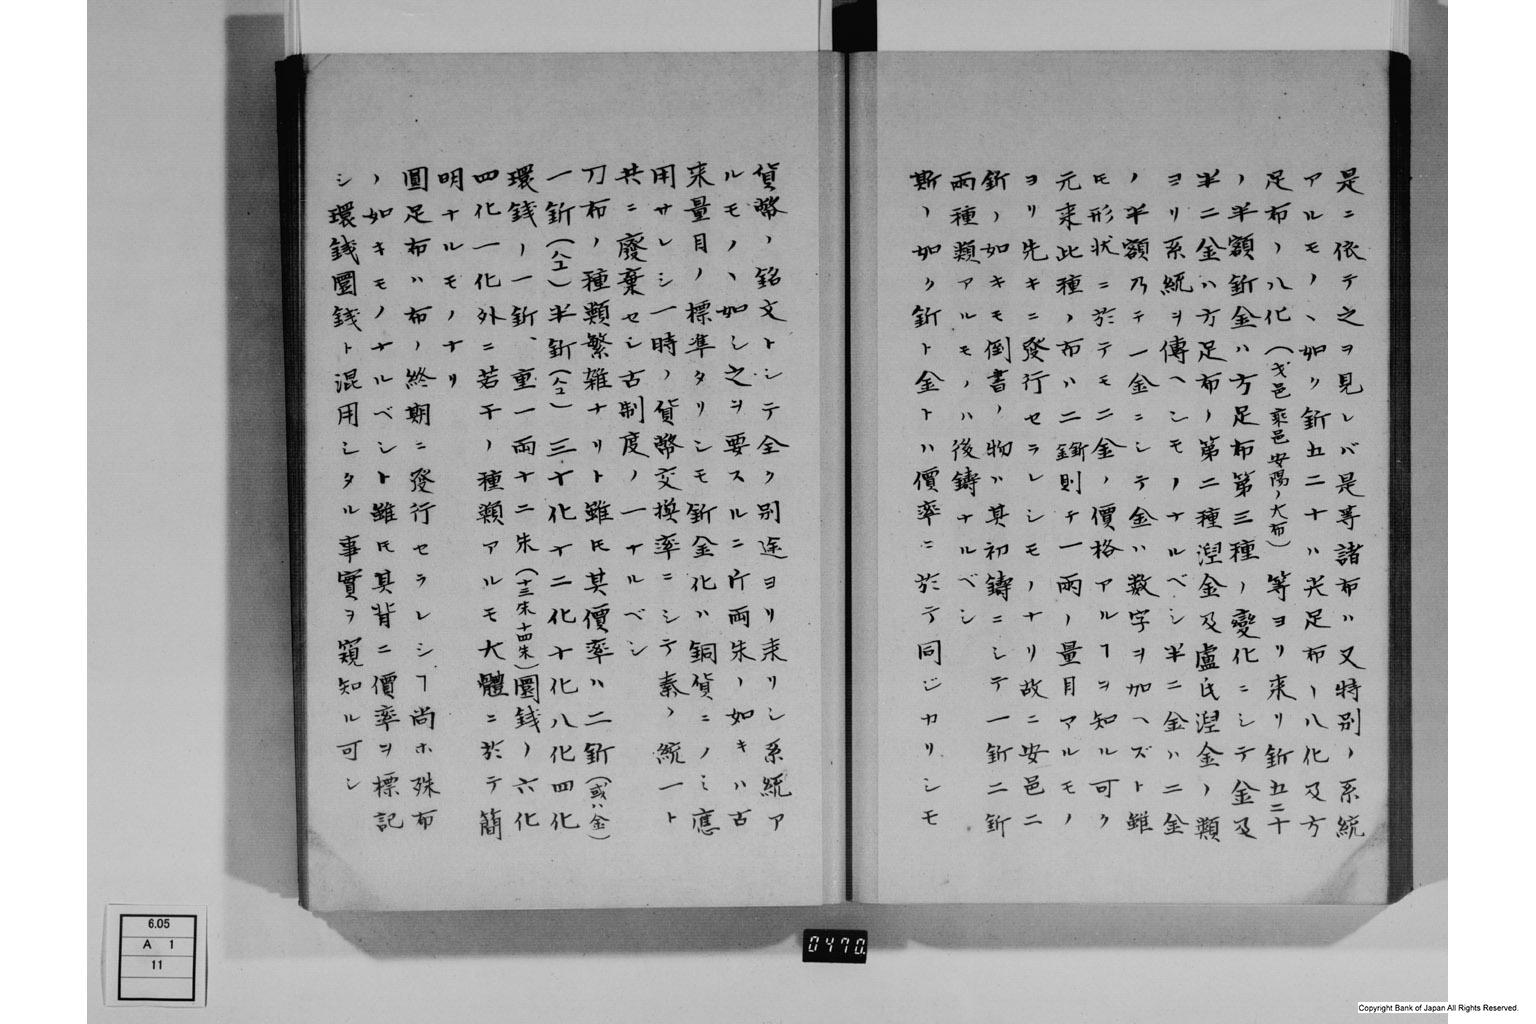 是ニ依テ之ヲ見レバ是等諸布ハ又特別ノ系統
アルモノヽ如リ釿五二十ハ尖足布ノ八化及方
足布ノ八化(戈邑乘邑安陽ノ大布)等ヨリ来リ釿五二十
ノ半額釿金ハ方足布第三種ノ變化ニシテ金及
半二金ハ方足布ノ第二種湼金及盧氏湼金ノ類
ヨリ系統ヲ傳ヘシモノナルベシ半二金ハ二金
ノ半額乃チ一金ニシテ金ハ数字ヲ加ヘズト雖
ㇳモ形状ニ於テモ二金ノ價格アルヿヲ知ル可ク
元来此種ノ布ハ二釿則チ一両ノ量目アルモノ
ヨリ先キニ發行セラレシモノナリ故ニ安邑ニ
釿ノ如キモ倒書ノ物ハ其初鋳ニシテ一釿二釿
両種類アルモノハ後鋳ナルベシ
斯ノ如ク釿ト金トハ價率ニ於テ同ジカリシモ
貨幣ノ銘文トシテ全ク別途ヨリ来リシ系統ア
ルモノヽ如シ之ヲ要スルニ斤両朱ノ如キハ古
来量目ノ標準タリシモ釿金化ハ銅貨ニノミ應
用サレシ一時ノ貨幣交換率ニシテ秦ノ統一ト
共ニ廢棄セシ古制度ノ一ナルベシ
刀布ノ種類繁雑ナリト雖ㇳモ其價率ハ二釿(或ハ金)
一釿半釿三十化十二化十化八化四化
環銭ノ一釿、重一両十二朱(十三朱十四朱)圜銭ノ六化
四化一化外ニ若干ノ種類アルモ大體ニ於テ簡
明ナルモノナリ
圓足布ハ布ノ終期ニ發行セラレシヿ尚ホ殊布
ノ如キモノナルベシト雖ㇳモ其背ニ價率ヲ標記
シ環銭圜銭ト混用シタル事實ヲ窺知ル可シ
0470.
6.05
A 1
11
Copyright Bank of Japan All Rights Reserved.